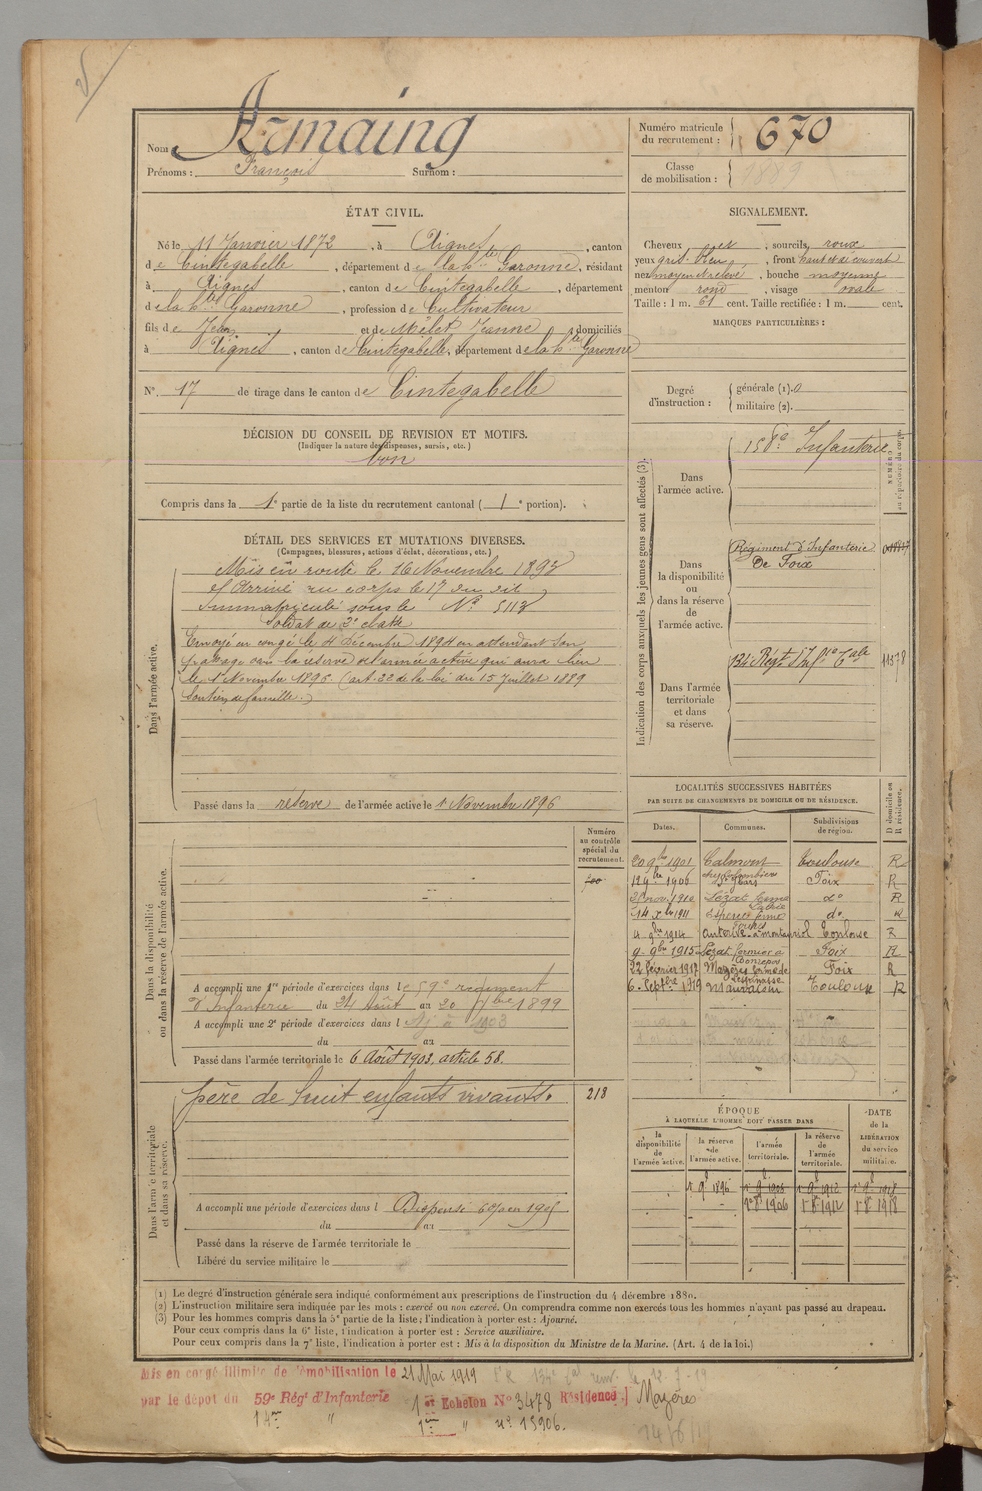 Nom Armaing
Prénoms : François Surnom :
Numéro matricule du recrutement : 670
Classe de mobilisation : 1889
ÉTAT CIVIL.
Né le 11 Janvier 1872, à Aignes, canton
de Cintegabelle, département de la hte Garonne, résidant
à Aignes, canton de Cintegabelle, département
de la hte Garonne, profession de Cultivateur
fils de Jean et de Mélet Jeanne, domiciliés
à Aignes, canton de Cintegabelle, département de la hte Garonne
N°. 17 de tirage dans le canton de Cintegabelle
SIGNALEMENT.
Cheveux et, sourcils roux
yeux gris bleu, front haut et découvert
nez moyen et relevé, bouche moyenne
menton rond, visage ovale
Taille : 1 m. 61 cent. Taille rectifiée : 1 m. cent.
MARQUES PARTICULIÈRES :
Degré d'instruction : générale (1). 0
militaire (2).
DÉCISION DU CONSEIL DE REVISION ET MOTIFS.
(Indiquer la nature des dispenses, sursis, etc.)
bon
Compris dans la 1e partie de la liste du recrutement cantonal ( 1e portion).
DÉTAIL DES SERVICES ET MUTATIONS DIVERSES.
(Campagnes, blessures, actions d'éclat, décorations, etc.)
Dans l'armée active.
Mis en route le 16 Novembre 1893
et Arrivé au corps le 17 du dit
immatriculé sous le N° 5113
Soldat de 2e classe
Envoyé en congé le 4 Décembre 1894 en attendant son
passage dans la réserve de l'armée active qui aura lieu
le 1er Novembre 1896 (art. 22 de la loi du 15 Juillet 1889
Soutien de famille.)
Passé dans la réserve de l'armée active le 1 Novembre 1896
Indication des corps auxquels les jeunes gens sont affectés (3).
NUMÉRO au répertoire du corps.
Dans l'armée active.
158e Infanterie
Dans la disponibilité ou dans la réserve de l'armée active.
Régiment d'Infanterie
De Foix
Dans l'armée territoriale et dans sa réserve.
134e Régt d'Infie Tale 11378
LOCALITÉS SUCCESSIVES HABITÉES
PAR SUITE DE CHANGEMENTS DE DOMICILE OU DE RÉSIDENCE.
Dates. Communes. Subdivisions de région. D domicile ou R résidence.
20 9bre 1901 Calmont Toulouse R
12 9bre 1906 St Ybars Foix R
nov. 1910 Lézat do R
14 Xbre 1911 do R
4 9bre 1914 Auterive Toulouse R
9 9bre 1915 Lézat Foix R
22 Février 1917 Mazères Foix R
6 Septbre 1919 Mauvaisin Toulouse R
Dans la disponibilité ou dans la réserve de l'armée active.
Numéro au contrôle spécial du recrutement.
700
A accompli une 1re période d'exercices dans le 59e régiment
d'Infanterie du 24 Août au 20 7bre 1899
A accompli une 2e période d'exercices dans l Aj. à 1903
du au
Passé dans l'armée territoriale le 6 Août 1903. article 58.
Dans l'armée territoriale et dans sa réserve.
père de huit enfants vivants. 218
A accompli une période d'exercices dans l Dispensé en 1905
du au
Passé dans la réserve de l'armée territoriale le
Libéré du service militaire le
ÉPOQUE
À LAQUELLE L'HOMME DOIT PASSER DANS
la disponibilité de l'armée active. la réserve de l'armée active. l'armée territoriale. la réserve de l'armée territoriale. DATE de la LIBÉRATION du service militaire.
1 9e 1896 1 9e 1906 1 9e 1912 1 9e 1918
1 8e 1906 1 8e 1912 1 8e 1918
(1) Le degré d'instruction générale sera indiqué conformément aux prescriptions de l'instruction du 4 décembre 1889.
(2) L'instruction militaire sera indiquée par les mots : exercé ou non exercé. On comprendra comme non exercés tous les hommes n'ayant pas passé au drapeau.
(3) Pour les hommes compris dans la 5e partie de la liste, l'indication à porter est : Ajourné.
Pour ceux compris dans la 6e liste, l'indication à porter est : Service auxiliaire.
Pour ceux compris dans la 7e liste, l'indication à porter est : Mis à la disposition du Ministre de la Marine. (Art. 4 de la loi.)
Mis en congé illimité de démobilisation le 21 Mai 1919
par le dépôt du 59e Régt d'Infanterie 1er Echelon N° 3478 Résidence Mazères
1ère " n° 15906.